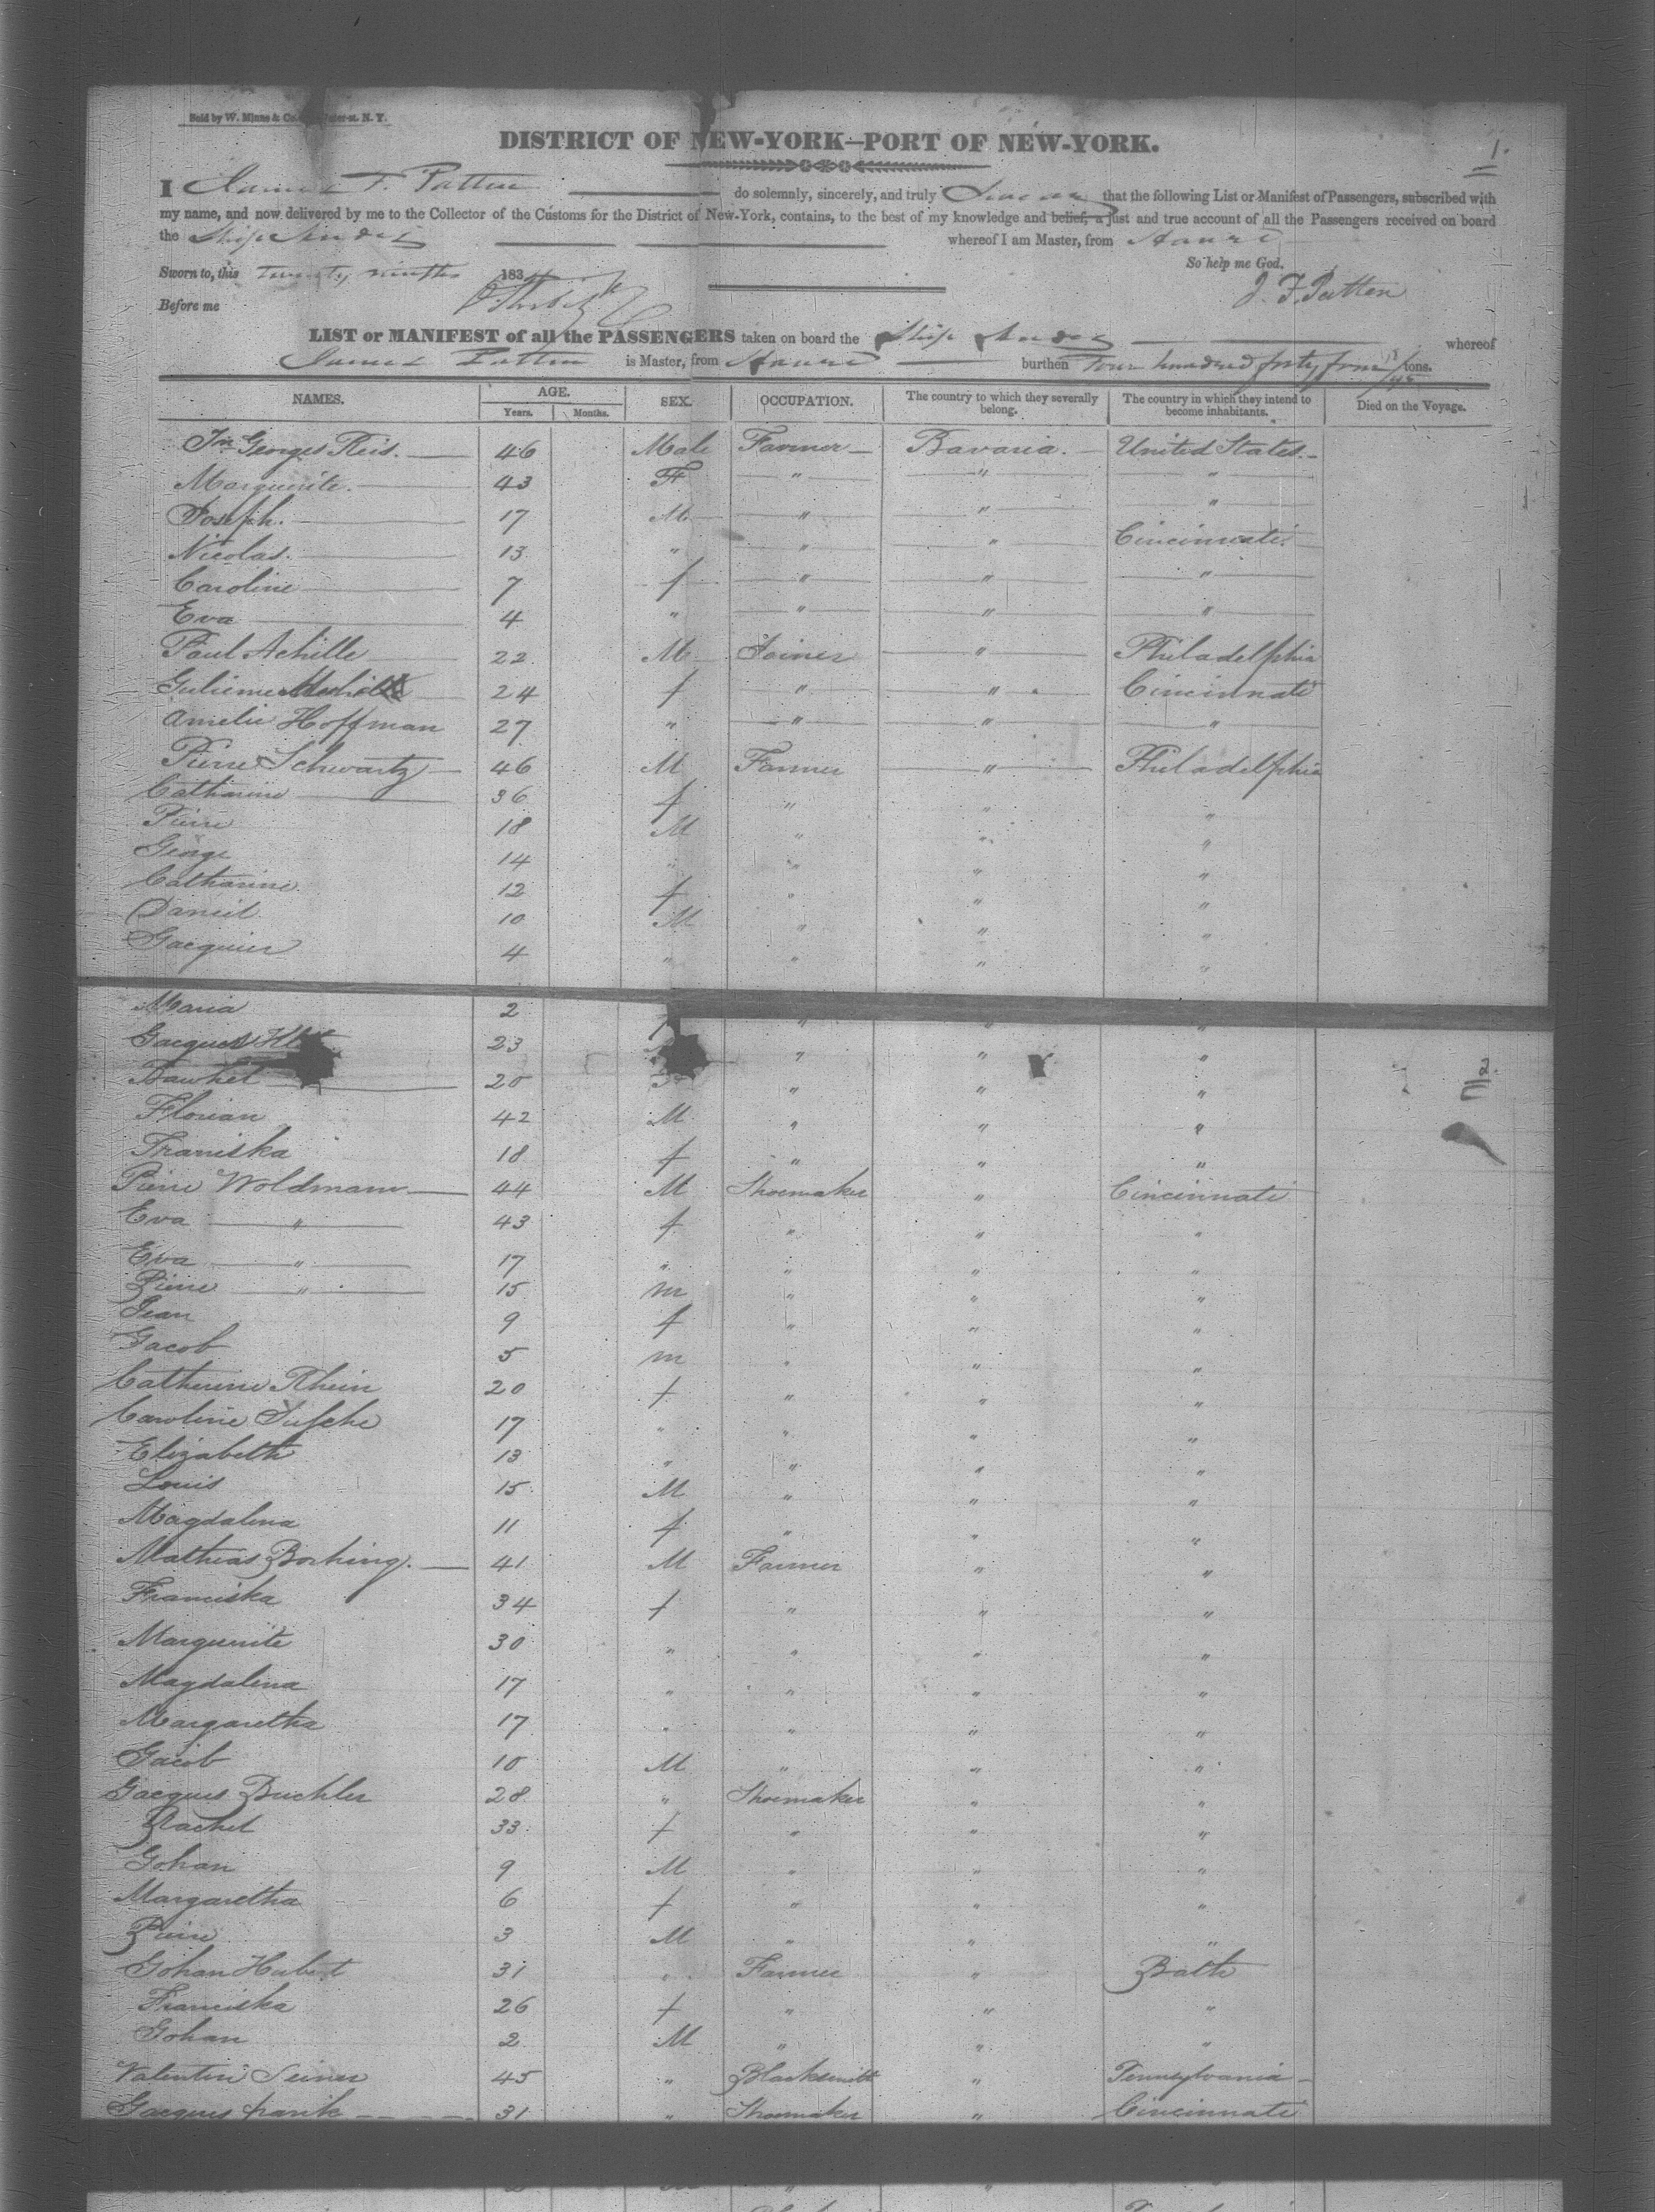 Sold by W. Minns & Co. Water-st. N. Y.
DISTRICT OF NEW-YORK—PORT OF NEW-YORK.
1.
I James F. Patten do solemnly, sincerely, and truly Swear that the following List or Manifest of Passengers, subscribed with
my name, and now delivered by me to the Collector of the Customs for the District of New-York, contains, to the best of my knowledge and belief, a just and true account of all the Passengers received on board
the Ship Andes whereof I am Master, from Havre
So help me God.
Sworn to, this Twenty ninth 183
J. F. Patten
Before me
LIST or MANIFEST of all the PASSENGERS taken on board the Ship Andes whereof
James Patten is Master, from Havre burthen Four hundred forty four tons.
NAMES. AGE. SEX. OCCUPATION. The country to which they severally belong. The country in which they intend to become inhabitants. Died on the Voyage.
Years. Months.
Jn Georges Reis. 46 Male Farmer Bavaria. United States.
Marguerite. 43 F " " "
Joseph. 17 M " " "
Nicolas. 13 " " " Cincinnati
Caroline 7 f " " "
Eva 4 " " " "
Paul Achille 22 M Joiner " Philadelphia
24 f " " Cincinnati
Amelie Hoffman 27 " " " "
Pierre Schwartz 46 M Farmer " Philadelphia
Catharine 36 f " " "
Pierre 18 M " " "
George 14 " " " "
Catharine 12 f " " "
Daniel 10 M " " "
Gacquier 4 " " " "
Maria 2 f " " "
Gacques 23 " " "
20 " " "
2.
Florian 42 M " " "
Franiska 18 f " " "
Pierre Woldmann 44 M Shoemaker " Cincinnati
Eva " 43 f " " "
Eva " 17 " " " "
Pierre " 15 m " " "
Jean 9 f " " "
Gacob 5 m " " "
Catherine Rhein 20 f " " "
Caroline 17 " " " "
Elizabeth 13 " " " "
Louis 15 M " " "
Magdalena 11 f " " "
Mathias Borhing. 41 M Farmer " "
Franciska 34 f " " "
Marguerite 30 " " " "
Magdalena 17 " " " "
Margaretha 17 " " " "
Gacob 10 M " " "
Gacques Buchler 28 " Shoemaker " "
Rachel 33 f " " "
Gohan 9 M " " "
Margaretha 6 f " " "
Pierre 3 M " " "
Gohan Hubert 31 " Farmer " Bath
Franciska 26 f " " "
Gohan 2 M " " "
Valentin Seiner 45 " Blacksmith " Pennsylvania
Gacques 31 " Shoemaker " Cincinnati